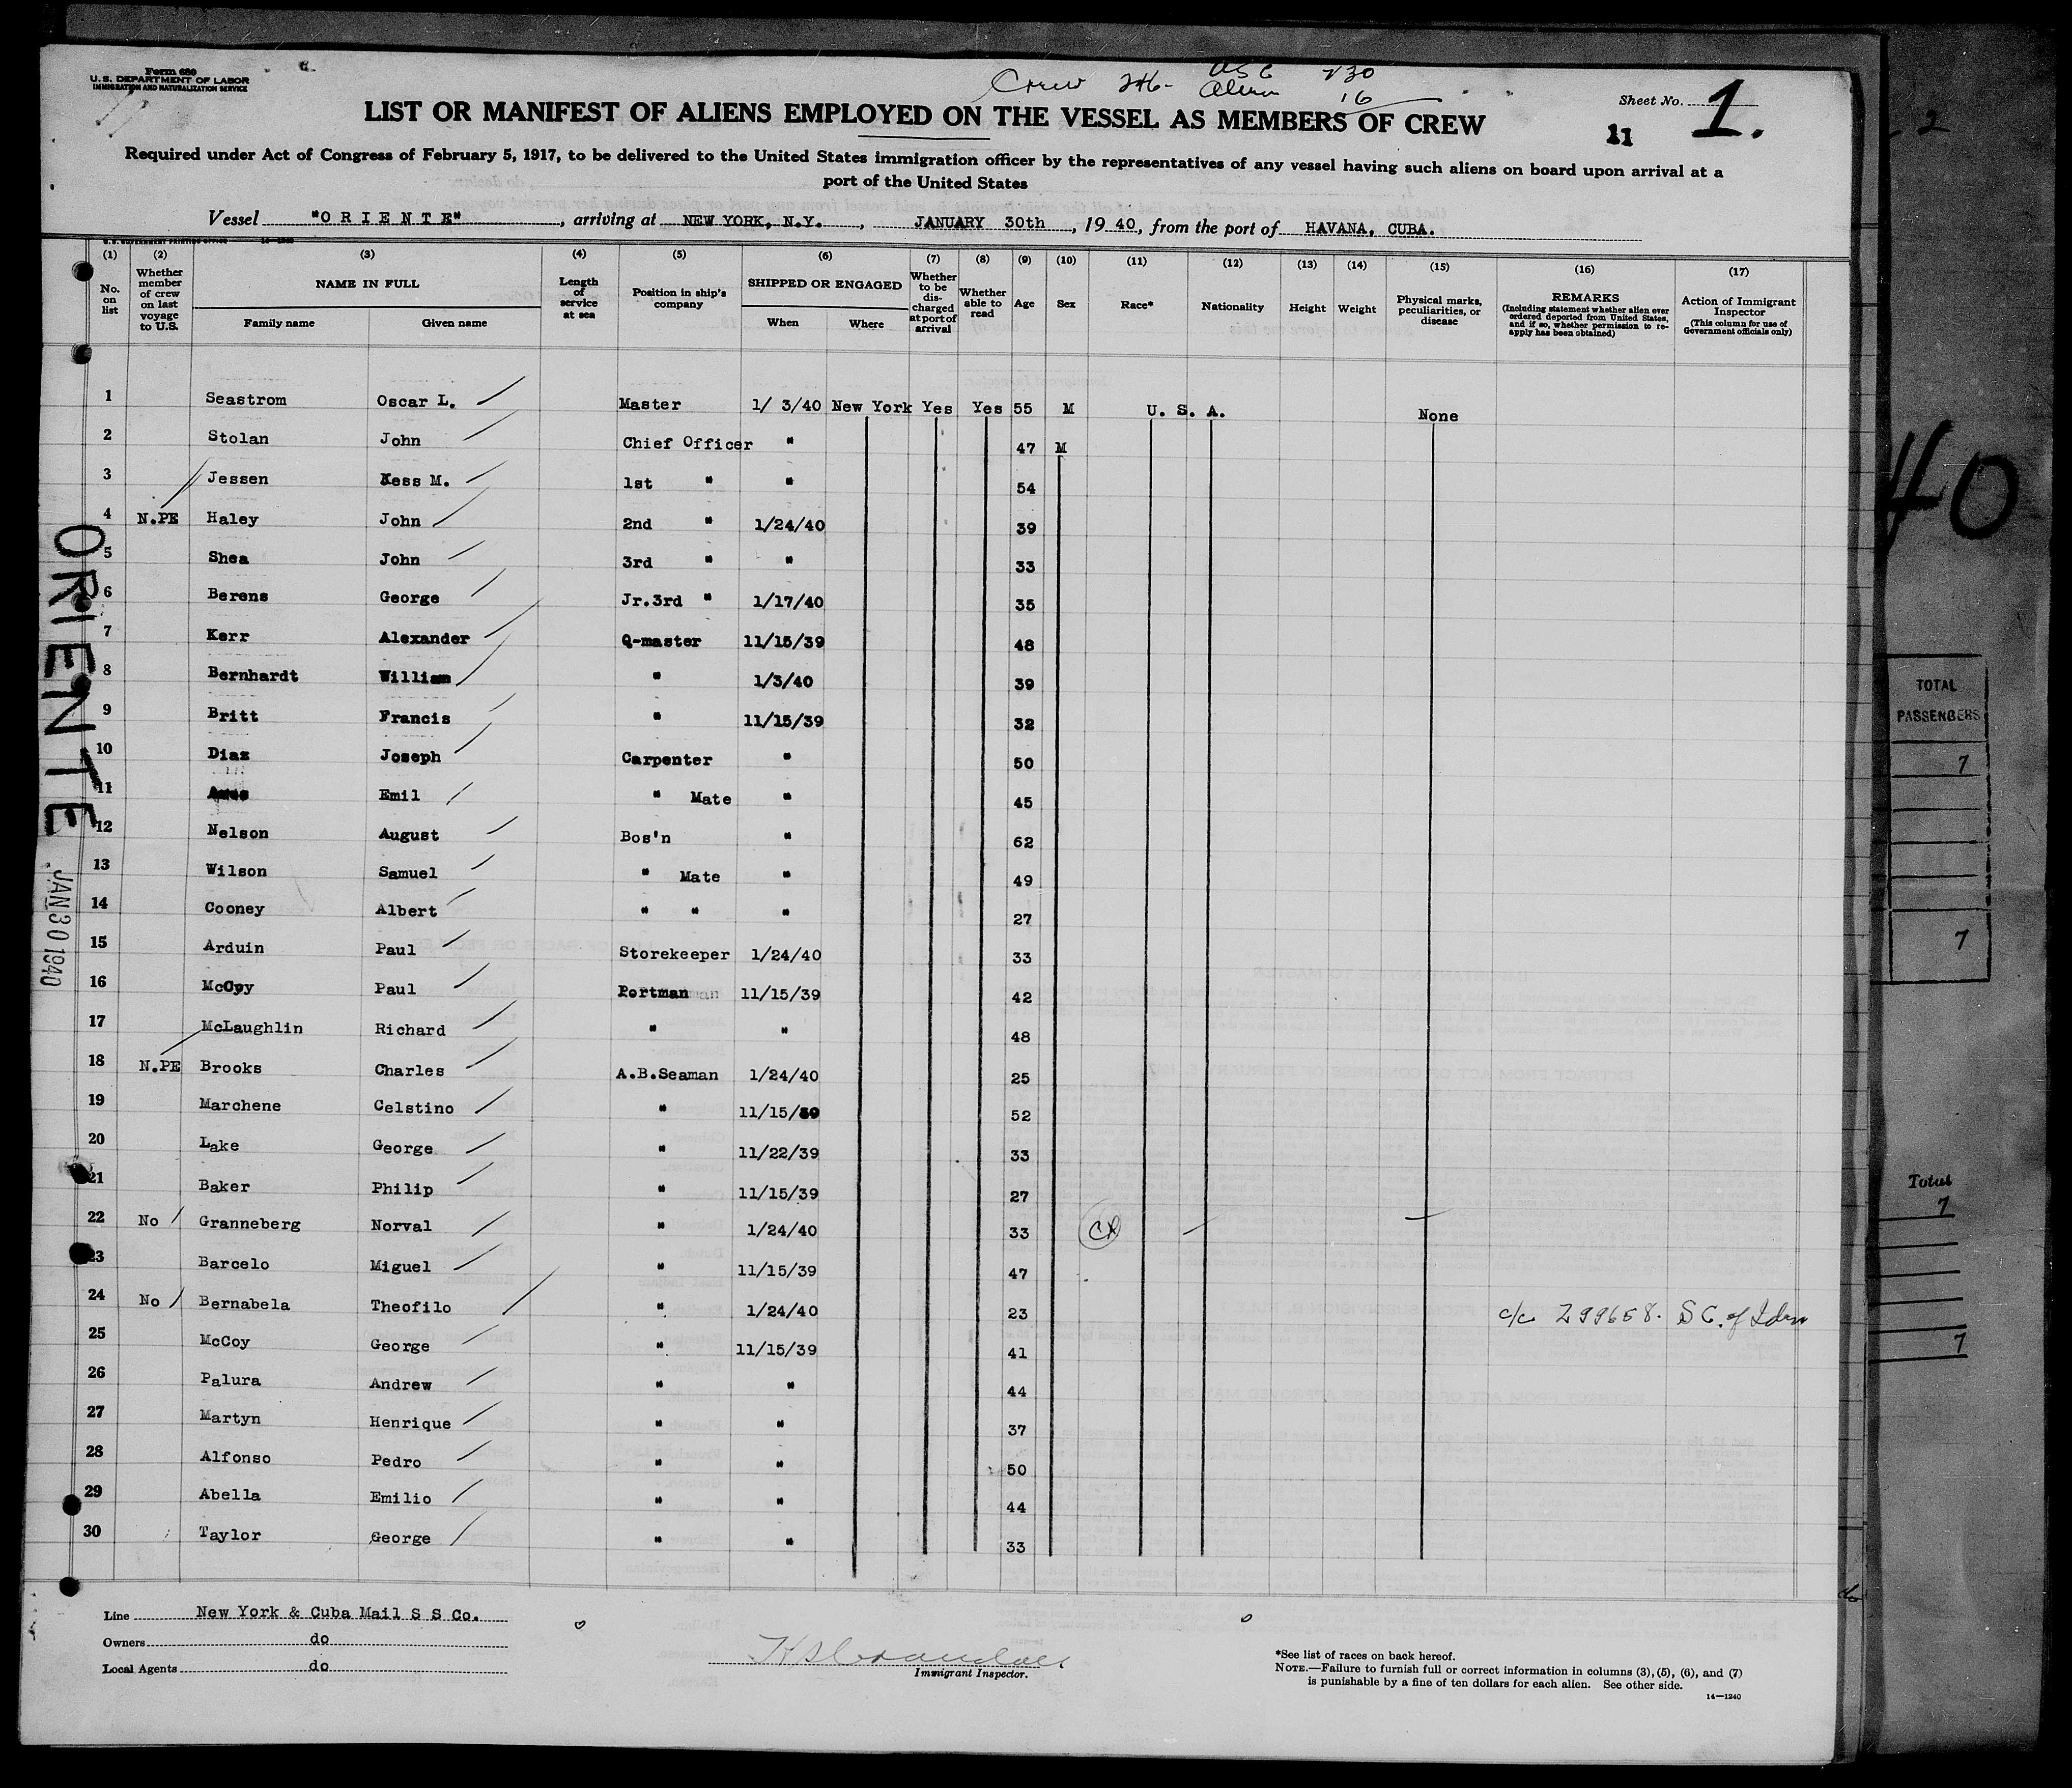 Form 680
U. S. DEPARTMENT OF LABOR
IMMIGRATION AND NATURALIZATION SERVICE
Crew 246- USC 230
Alien 16
LIST OR MANIFEST OF ALIENS EMPLOYED ON THE VESSEL AS MEMBERS OF CREW
Sheet No. 1.
11
Required under Act of Congress of February 5, 1917, to be delivered to the United States immigration officer by the representatives of any vessel having such aliens on board upon arrival at a
port of the United States
Vessel "O R I E N T E", arriving at NEW YORK, N.Y., JANUARY 30th, 19 40, from the port of HAVANA, CUBA.
U. S. GOVERNMENT PRINTING OFFICE 14-1240
(1) No. on list
(2) Whether member of crew on last voyage to U.S.
(3) NAME IN FULL Family name Given name
(4) Length of service at sea
(5) Position in ship's company
(6) SHIPPED OR ENGAGED When Where
(7) Whether to be discharged at port of arrival
(8) Whether able to read
(9) Age
(10) Sex
(11) Race*
(12) Nationality
(13) Height
(14) Weight
(15) Physical marks, peculiarities, or disease
(16) REMARKS (Including statement whether alien ever ordered deported from United States, and if so, whether permission to reapply has been obtained)
(17) Action of Immigrant Inspector (This column for use of Government officials only)
1 Seastrom Oscar L. Master 1/ 3/40 New York Yes Yes 55 M U. S. A. None
2 Stolan John Chief Officer " 47 M
3 Jessen Kess M. 1st " " 54
4 N.PE Haley John 2nd " 1/24/40 39
5 Shea John 3rd " " 33
6 Berens George Jr.3rd " 1/17/40 35
7 Kerr Alexander Q-master 11/15/39 48
8 Bernhardt William " 1/3/40 39
9 Britt Francis " 11/15/39 32
10 Diaz Joseph Carpenter " 50
11 Emil " Mate " 45
12 Nelson August Bos'n " 62
13 Wilson Samuel " Mate " 49
14 Cooney Albert " " " 27
15 Arduin Paul Storekeeper 1/24/40 33
16 McCoy Paul Portman 11/15/39 42
17 McLaughlin Richard " " 48
18 N.PE Brooks Charles A.B.Seaman 1/24/40 25
19 Marchene Celstino " 11/15/39 52
20 Lake George " 11/22/39 33
21 Baker Philip " 11/15/39 27
22 No Granneberg Norval " 1/24/40 33 CR
23 Barcelo Miguel " 11/15/39 47
24 No Bernabela Theofilo " 1/24/40 23 c/c 299658. S C. of Iden
25 McCoy George " 11/15/39 41
26 Palura Andrew " " 44
27 Martyn Henrique " " 37
28 Alfonso Pedro " " 50
29 Abella Emilio " " 44
30 Taylor George " " 33
ORIENTE
JAN 30 1940
Line New York & Cuba Mail S S Co.
Owners do
Local Agents do
Immigrant Inspector.
*See list of races on back hereof.
NOTE.—Failure to furnish full or correct information in columns (3), (5), (6), and (7)
is punishable by a fine of ten dollars for each alien. See other side.
14—1240
2
40
TOTAL
PASSENGERS
7
7
Total
7
7